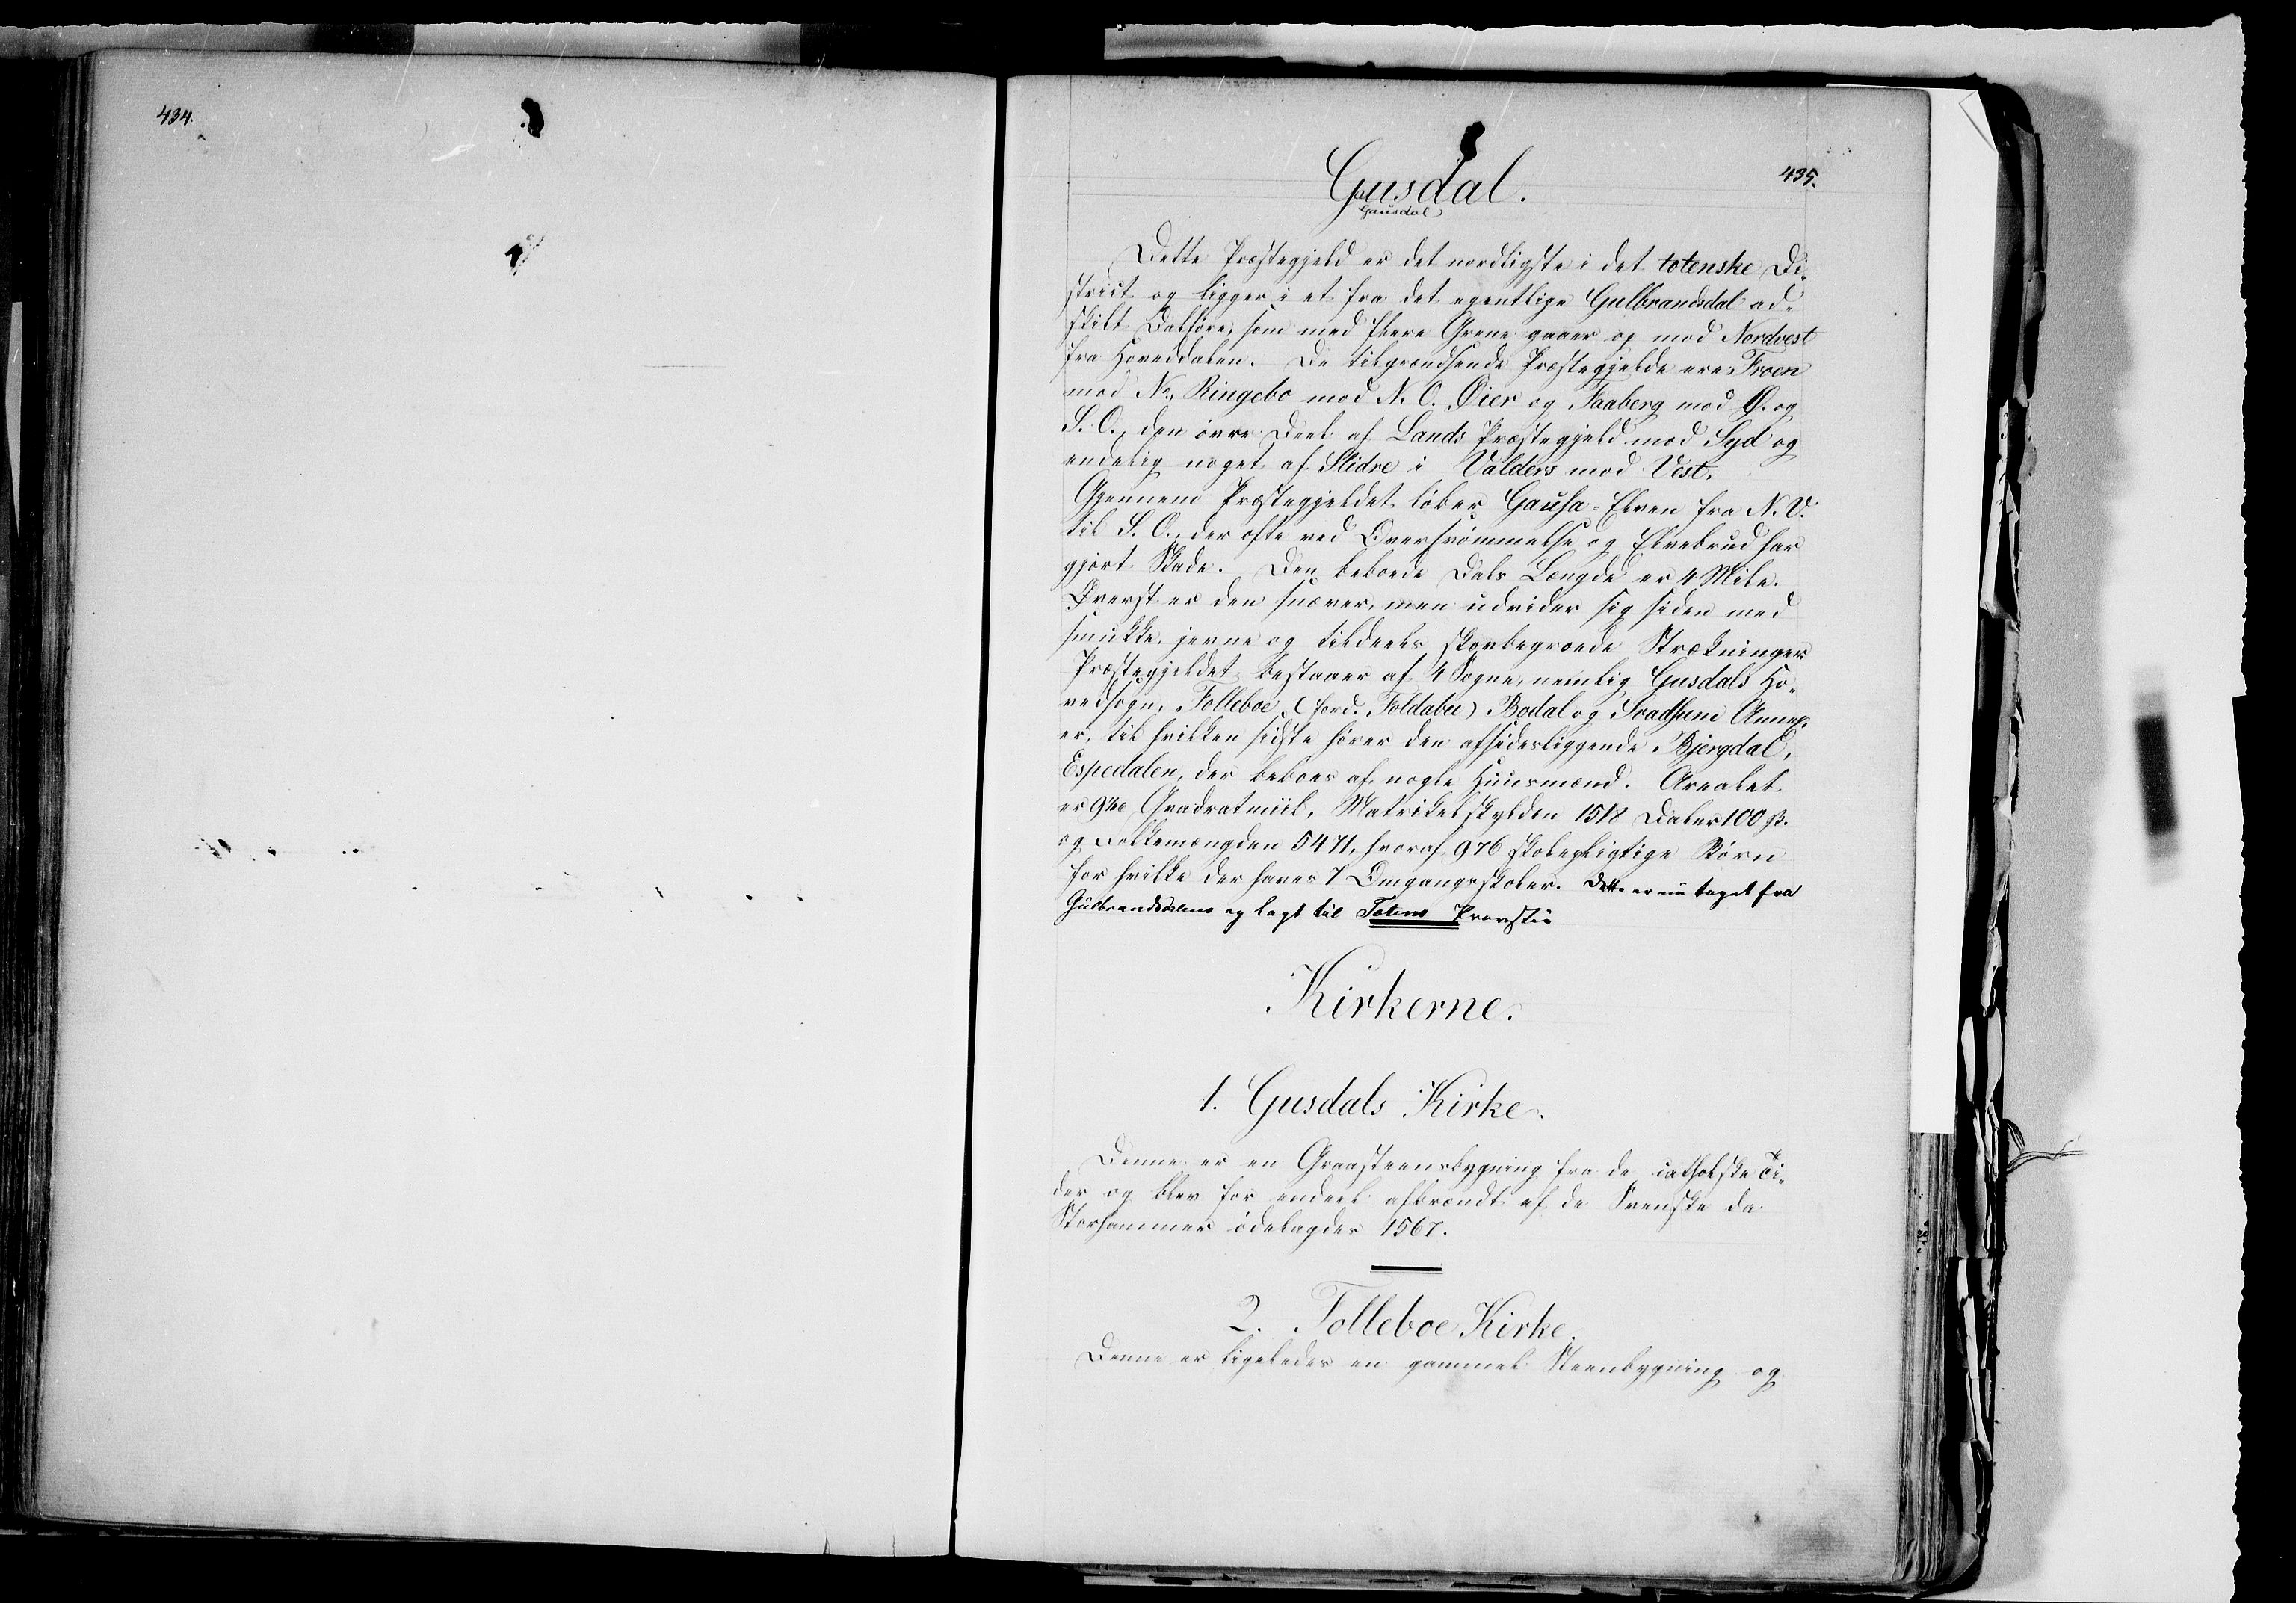 434.
435.
Gusdal.
Gausdal
Dette Præstegjeld er det nordligste i det totenske Di-
strict og ligger i et fra det egentlige Gulbrandsdal ad-
skilt Dalføre, som med flere Grene gaaer op mod Nordvest
fra Hoveddalen. De tilgrændsende Præstegjelde ere, Froen
mod N., Ringebo mod N. O. Øier og Faaberg mod Ø. og
S. O., den øvre Deel af Lands Præstegjeld mod Syd og
endelig noget af Slidre i Valders mod Vest.
Gjennem Præstegjeldet løber Gausa-Elven fra N. V.
til S. O., der ofte ved Oversvømmelse og Elvebrud har
gjort Skade. Den beboede Dals Længde er 4 Mile.
Øverst er den snæver, men udvider sig siden med
smukke jevne og tildeels skovbegroede Strækninger
Præstegjeldet bestaaer af 4 Sogne, nemlig Gusdals Ho-
vedsogn, Folleboe (ford. Foldabu) Bodal og Svadsum Annex-
er, til hvilken sidste hører den afsidesliggende Bjergdal,
Espedalen, der beboes af nogle Huusmænd. Arealet
er Qvadratmiil, Matrikelskylden 1518 Daler 100 ß.
og Folkemængden 5471, hvoraf 976 skolepligtige Børn
for hvilke der haves 7 Omgangsskoler. Dette er nu taget fra
Gulbrandsdalens og lagt til Totens Provsti
Kirkerne.
1. Gusdals Kirke.
Denne er en Graasteensbygning fra de catholske Ti-
der og blev for endeel afbrændt af de Svenske da
Storhammer ødelagdes 1567.
2. Folleboe Kirke.
Denne er ligeledes en gammel Steenbygning og